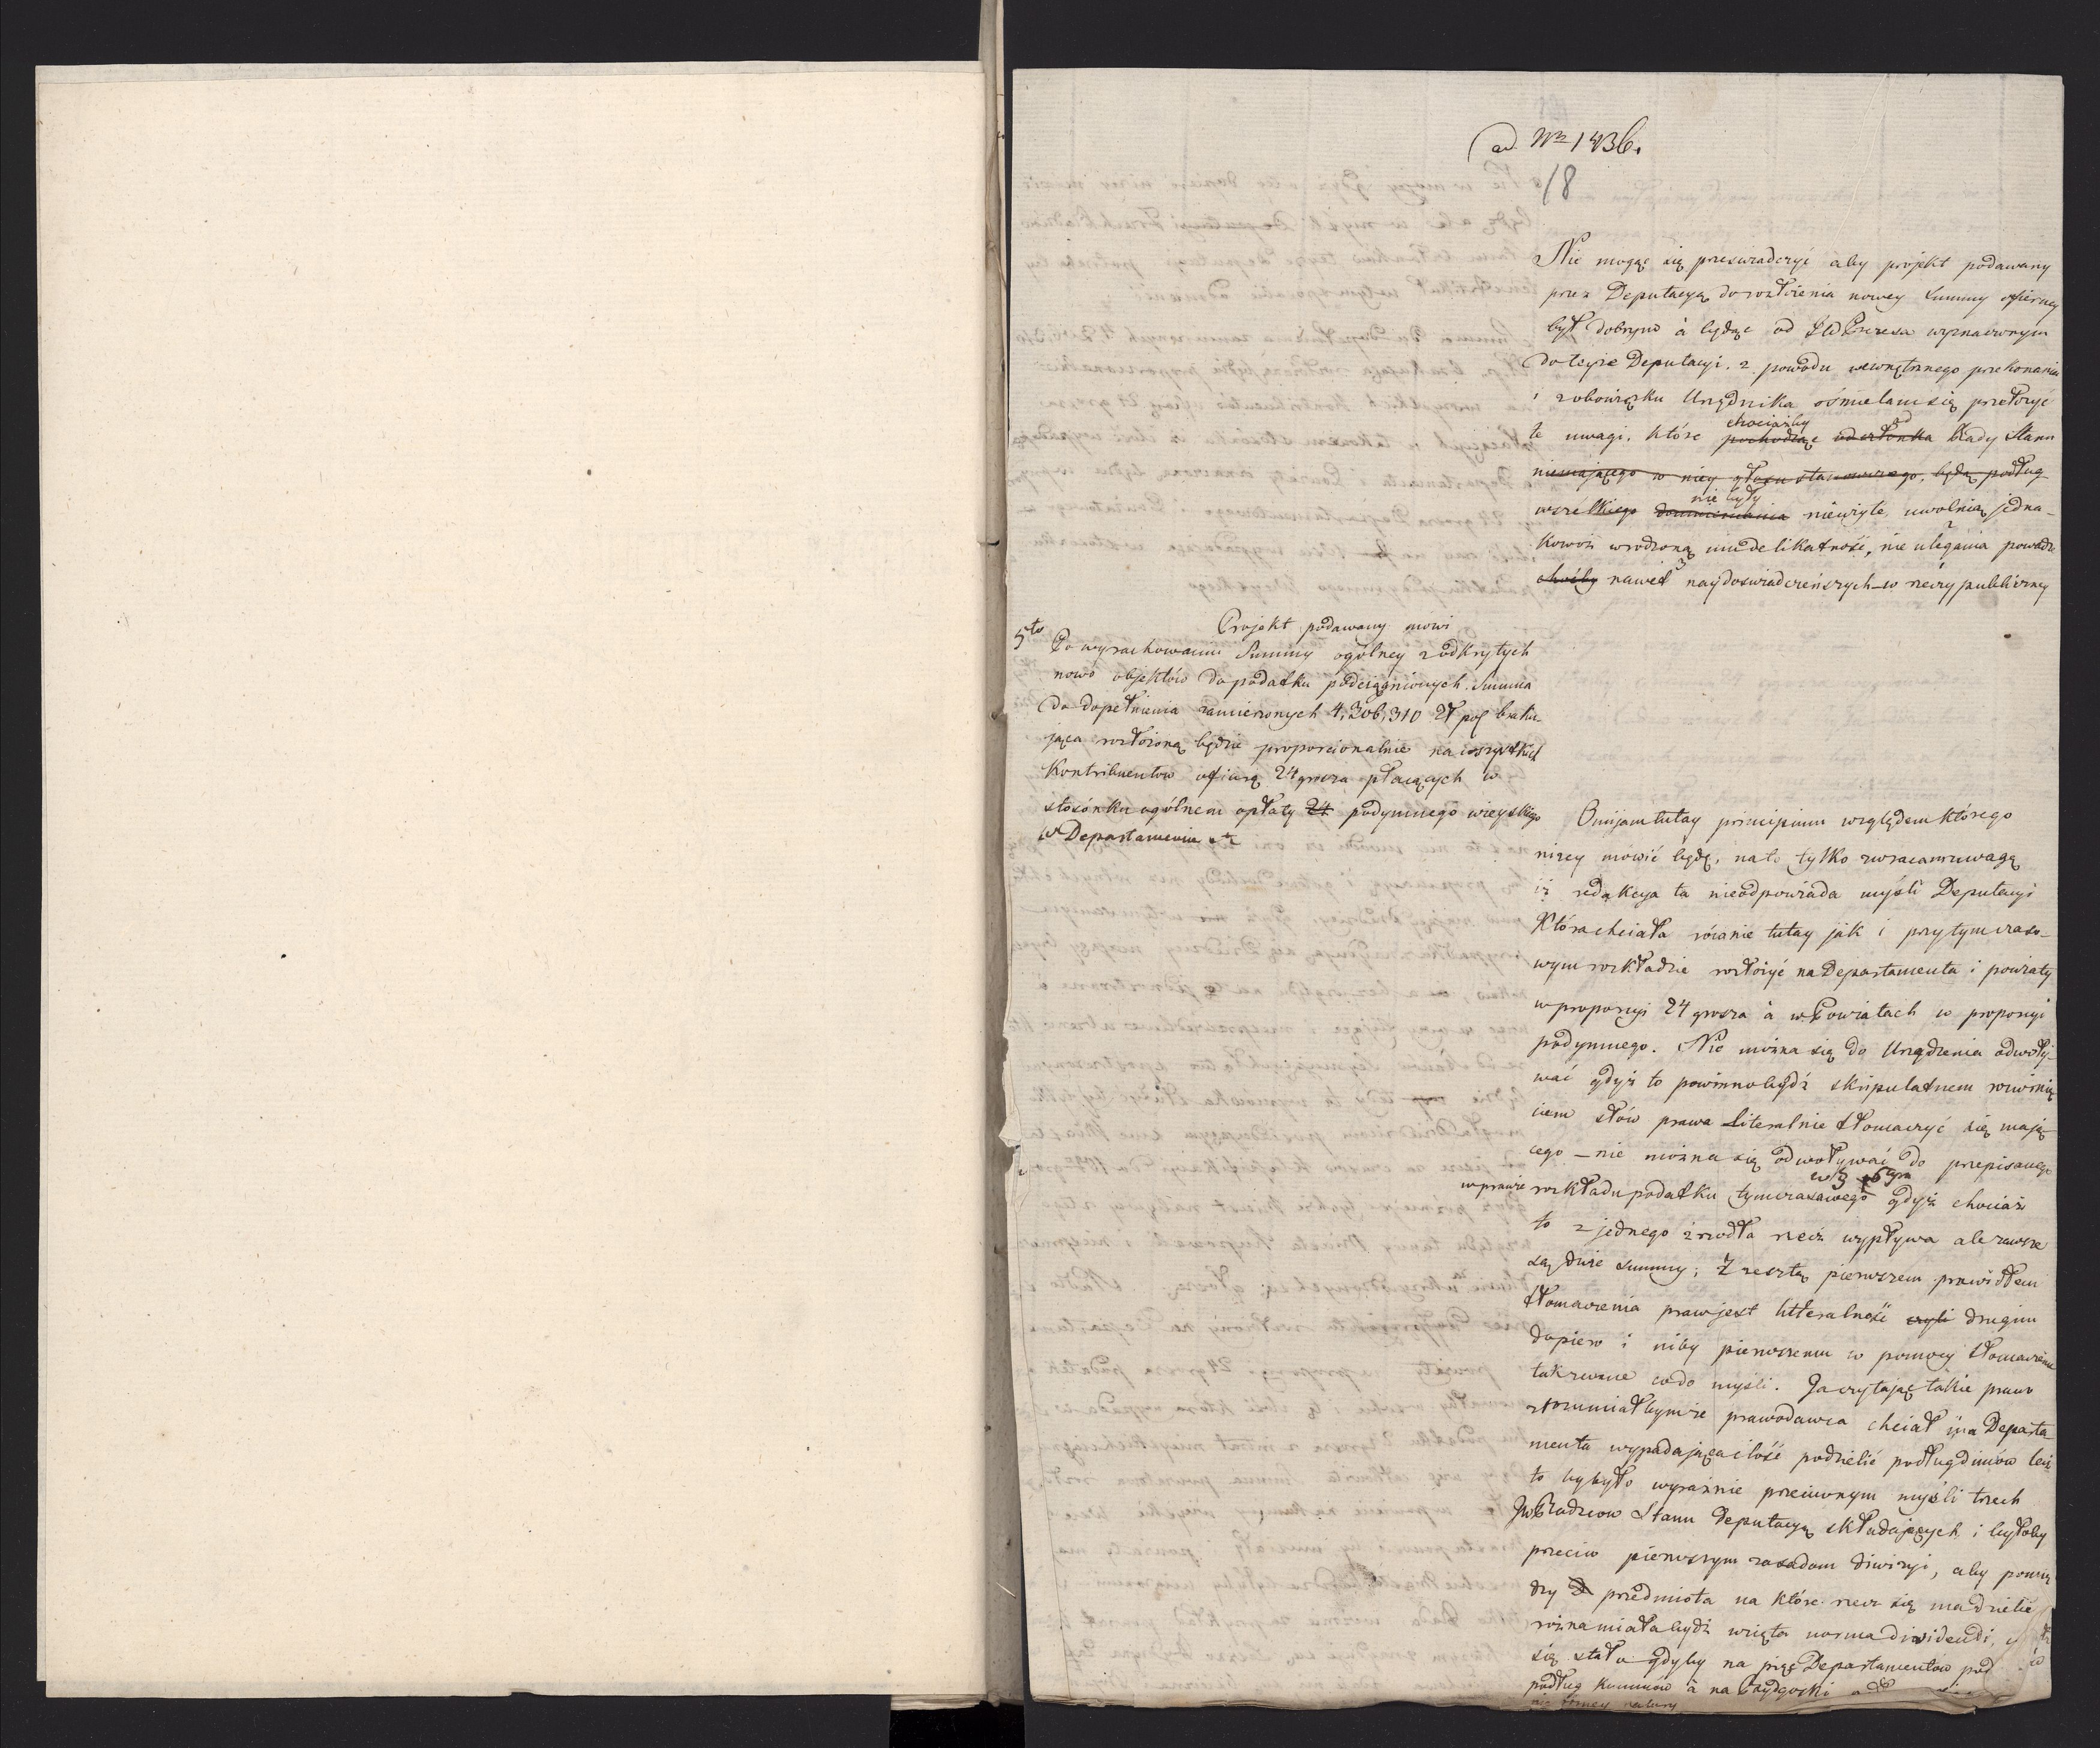 ad. Nro 1436.
18
Nie mogąc się przeswiadczyć aby projekt podawany
przez Deputacyą do rozłożenia nowey Summy ofiarney
był dobrym à będąc od JW Prezesa wyznaczonym
do teyże Deputacyi. z powodu wewnętrznego przekonania
i zobowiązku Urzędnika ośmielam się przełożyć
chociażby od
te uwagi, które pochodząc od członka Rady Stanu
niemającego w niey głosu stanowczego, będą podług
nie były
wszelkiego nieużyte, uwolnią jedna-
kowoż wrodzoną mu delikatność, nie ulegania powadze
choćby nawet naydoswiadczeńszych w rzeczy publiczney
Projekt podawany mówi
5to Po wyrachowaniu Summy ogólney z odkrytych
nowo objektów do podatku podciągnionych. Summa
do dopełnienia zamierzonych 4,306,310 Zł pol braku-
jąca rozłożoną będzie proporcionalnie na wszystkich
Kontribuentów ofiarą 24 grosza płacących w
stosónku ogólnem opłaty 24 podymnego wieyskiego
w Departamencie etc
Omijam tutay principium względem którego
niżey mówić będę, na to tylko zwracam uwagę
iż redakcya ta nieodpowiada myśli Deputacyi
Która chciała równie tutay jak i przy tymczaso-
wym rozkładzie rozłożyć na Departamenta i powiaty
w proporcyi 24 grosza à w Powiatach w proporcyi
podymnego. Nie można się do Urządzenia odwoły-
wać gdyż to powinno bydź skrupulatnem rozwinię
ciem słów prawa literalnie tłomaczyć się mają-
cego – nie można się odwoływać do przepisanego
w prawie rozkładu podatku tymczasowego gdyż chociaż
to z jednego źrodła rzecz wypływa ale zawsze
są dwie summy; Zresztą pierwszem prawidłem
tłomaczenia praw jest litteralność czyli drugim
dopiero i niby pierwszemu w pomocy tłomaczenie
takzwane co do myśli. Ja czytając takie prawo
zrozumiałbym że prawodawca chciał iż na Departa-
menta wypadającą ilość podzielić podług dymów lecz
to by było wyraznie przeciwnym myśli trzech
JW Radzców Stanu Deputacyą składających i byłoby
przeciw pierwszym zasadom diwizyi, aby pomię
dzy 2 przedmiota na które rzecz się ma dzielić
rożna miała bydź wzięta norma dividendi,
się stało gdyby na pięć Departamentow pod
podług kominów à na Bydgoski